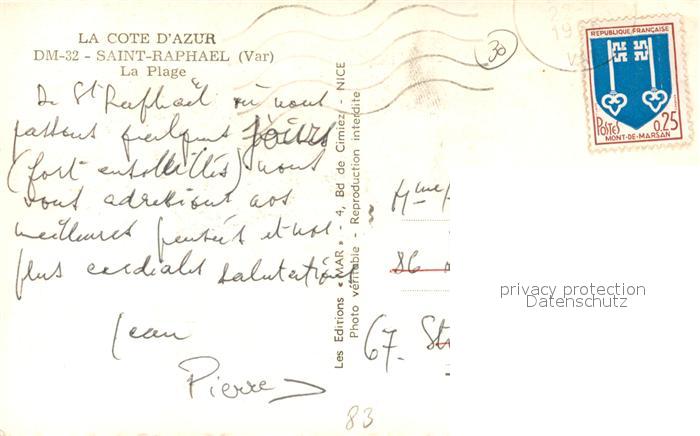 LA COTE D'AZUR
DM-32 - SAINT-RAPHAEL (Var)
La Plage
De St Raphaël où nous
passons quelques jours
(fort ensoleillés) nous
vous adressons nos
meilleures pensées et nos
plus cordiales salutations
Jean
Pierre
83
Les Editions « MAR » - 4, Bd de Cimiez - NICE
Photo véritable - Reproduction interdite
30
REPUBLIQUE FRANÇAISE
POSTES
0,25
MONT-DE-MARSAN
Mme
86
67. St
privacy protection
Datenschutz